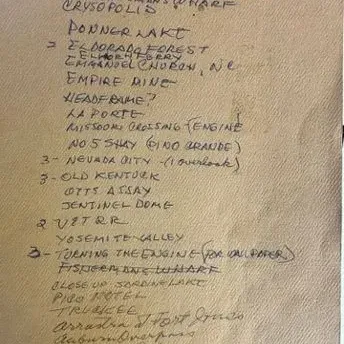 WHARF
CRYSOPOLIS
DONNER LAKE
2 ELDORADO FOREST
FERRY
EMMANUEL CHURCH, NC
EMPIRE MINE
HEADFRAME?
LA PORTE
MISSOURI CROSSING (ENGINE
NO 5 SHAY (PINO GRANDE)
3- NEVADA CITY - (1 overlook)
3- OLD KENTUCK
OTTS ASSAY
SENTINEL DOME
2 V&T RR
YOSEMITE VALLEY
3- TURNING THE ENGINE (FOR WALLPAPER)
FISHERMANS WHARF
CLOSE UP SARDINE LAKE
PICO HOTEL
TRUCKEE
Arrastra & Fort Jones
Auburn Overpass